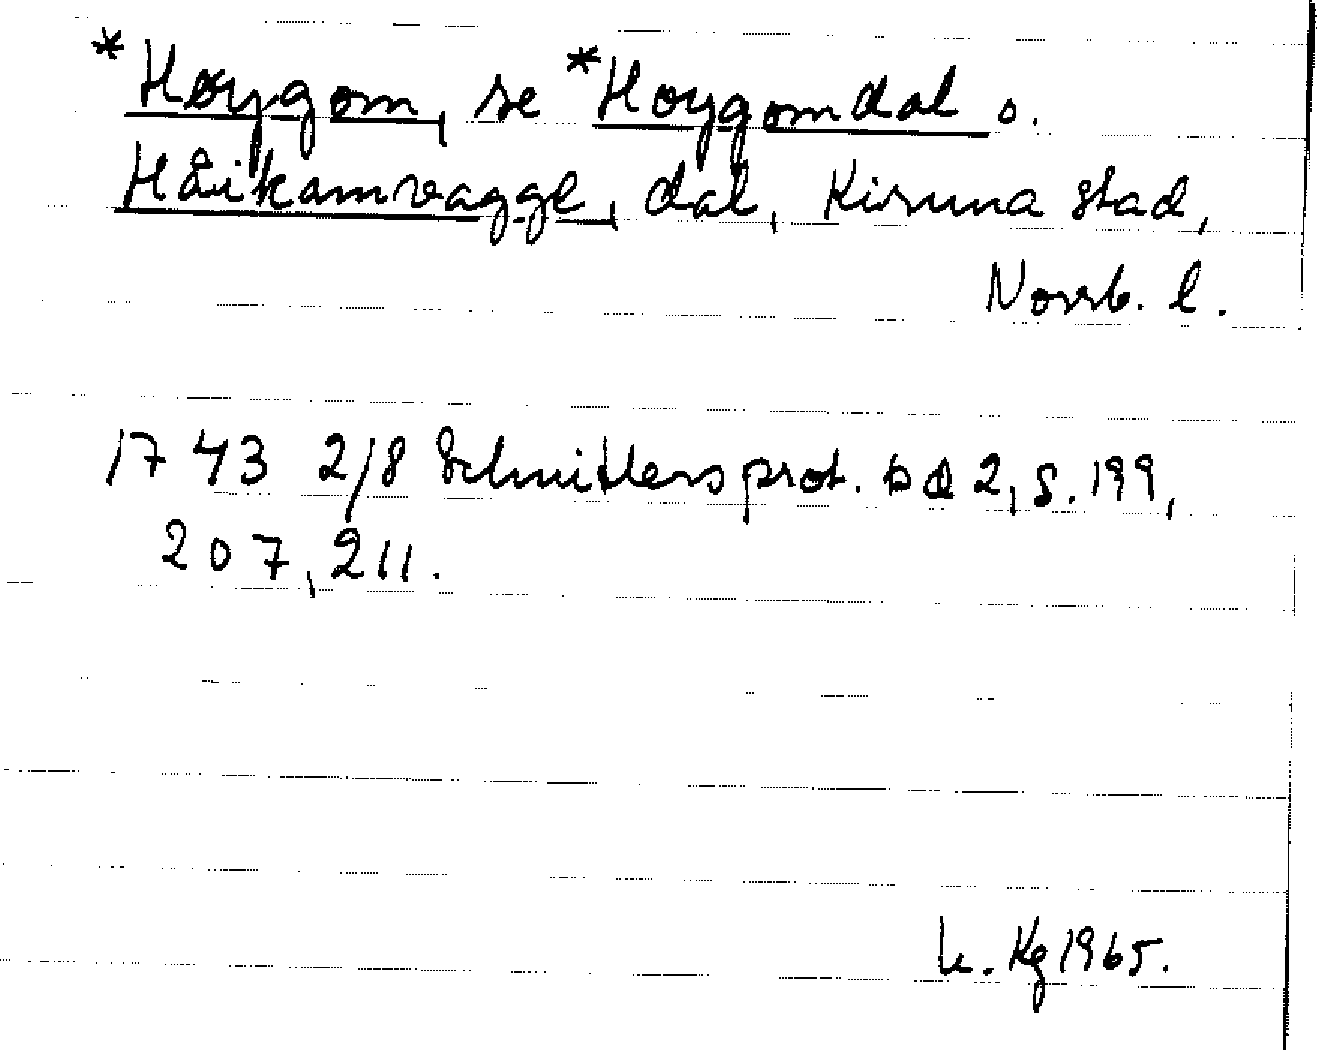 *Høygom, se *Hoygomdal o.
Håikamvagge, dal, Kiruna stad,
Norrb. l.
1743 2/8 Schnitlers prot. bd 2, s. 199,
207, 211.
h. Kg 1965.